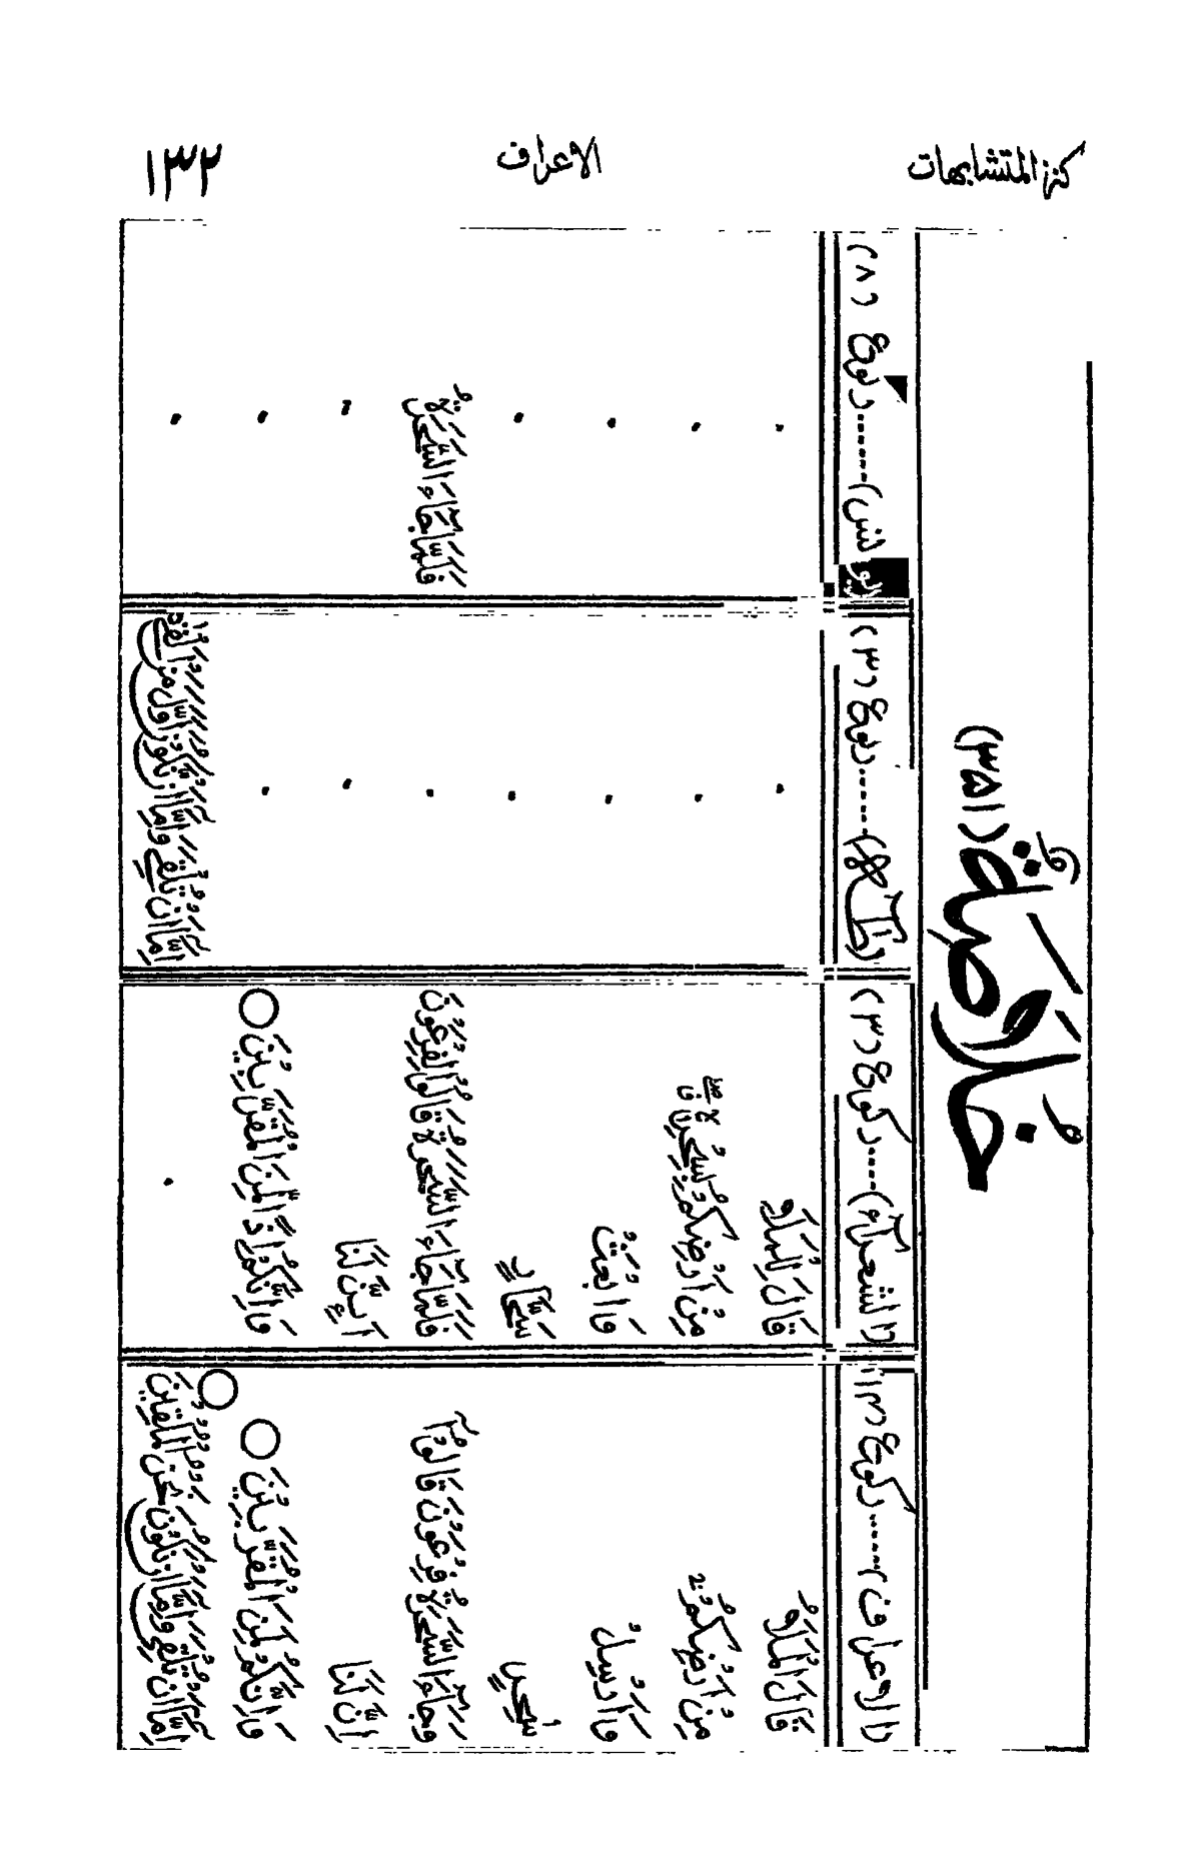 كنز المتشابهات
الاعراف
١٣٢
خلاصة (١٣٥)
(الاعراف)......ركوع ١٣
(الشعرآء)......ركوع (٣)
(طٰهٰ)......ركوع (٣)
(يونس)......ركوع (٨)
قَالَ الْمَلَاُ
قَالَ لِلْمَلَاِ
مِنْ اَرْضِكُمْ
مِنْ اَرْضِكُمْ بِسِحْرِهٖ
وَاَرْسِلْ
وَابْعَثْ
سٰحِرٍ
سَحَّارٍ
وَجَآءَ السَّحَرَةُ فِرْعَوْنَ قَالُوْٓا
فَلَمَّا جَآءَ السَّحَرَةُ قَالُوْا لِفِرْعَوْنَ
فَلَمَّا جَآءَ السَّحَرَةُ
اِنَّ لَنَا
اَئِنَّ لَنَا
وَاِنَّكُمْ لَمِنَ الْمُقَرَّبِيْنَ
وَاِنَّكُمْ اِذًا لَّمِنَ الْمُقَرَّبِيْنَ
اِمَّآ اَنْ تُلْقِيَ وَاِمَّآ اَنْ نَّكُوْنَ نَحْنُ الْمُلْقِيْنَ
اِمَّآ اَنْ تُلْقِيَ وَاِمَّآ اَنْ نَّكُوْنَ اَوَّلَ مَنْ اَلْقٰى